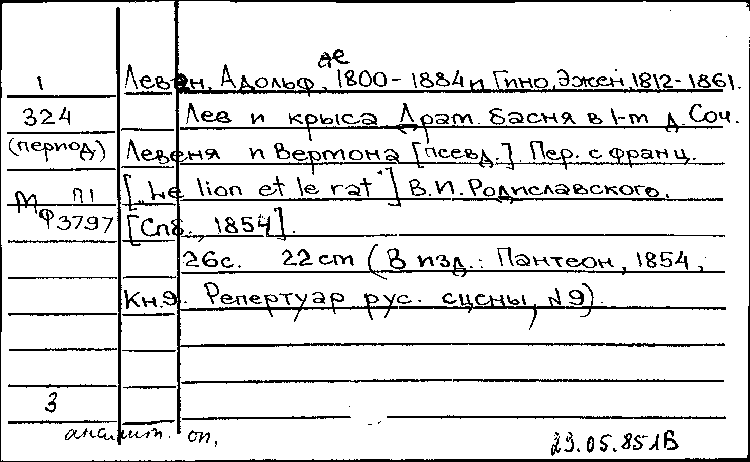 1 Левен, Адольф де, 1800-1884 и Гино, Эжен, 1812-1861.
324 Лев и крыса Драт. басня в 1-т д. Соч.
(период) Левеня и Вертона [псевд.]. Пер. с франц.
М п1 [„Le lion et le rat"] В.И. Родиславского.
ф 3797 [Спб., 1854].
26с. 22 cm (В изд.: Пантеон, 1854,
Кн.9. Репертуар рус. сцены, №9).
3
аналит. оп,
23.05.85